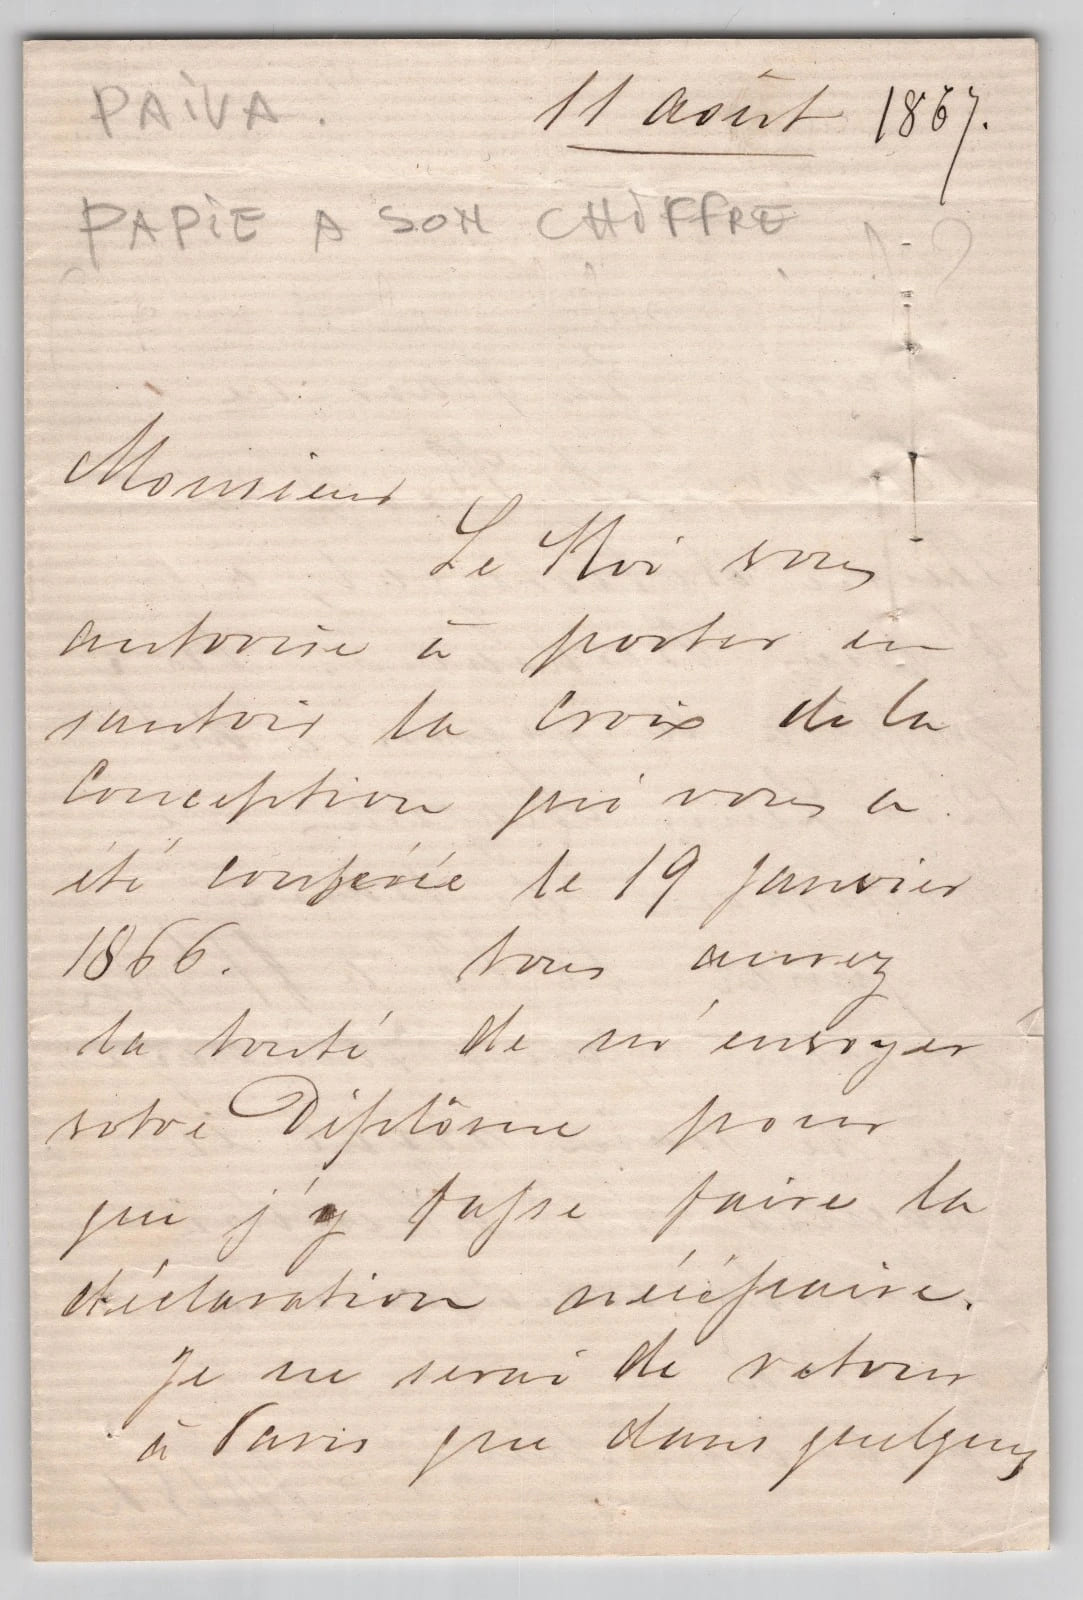 PAIVA.
11 août 1867.
PAPIE A SON CHIFFRE
Monsieur
Le Roi vous
autorise à porter en
sautoir la croix de la
Conception qui vous a
été conférée le 19 janvier
1866. Vous aurez
la bonté de m'envoyer
votre Diplôme pour
que j'y fasse faire la
déclaration nécéssaire.
Je ne serai de retour
à Paris que dans quelques